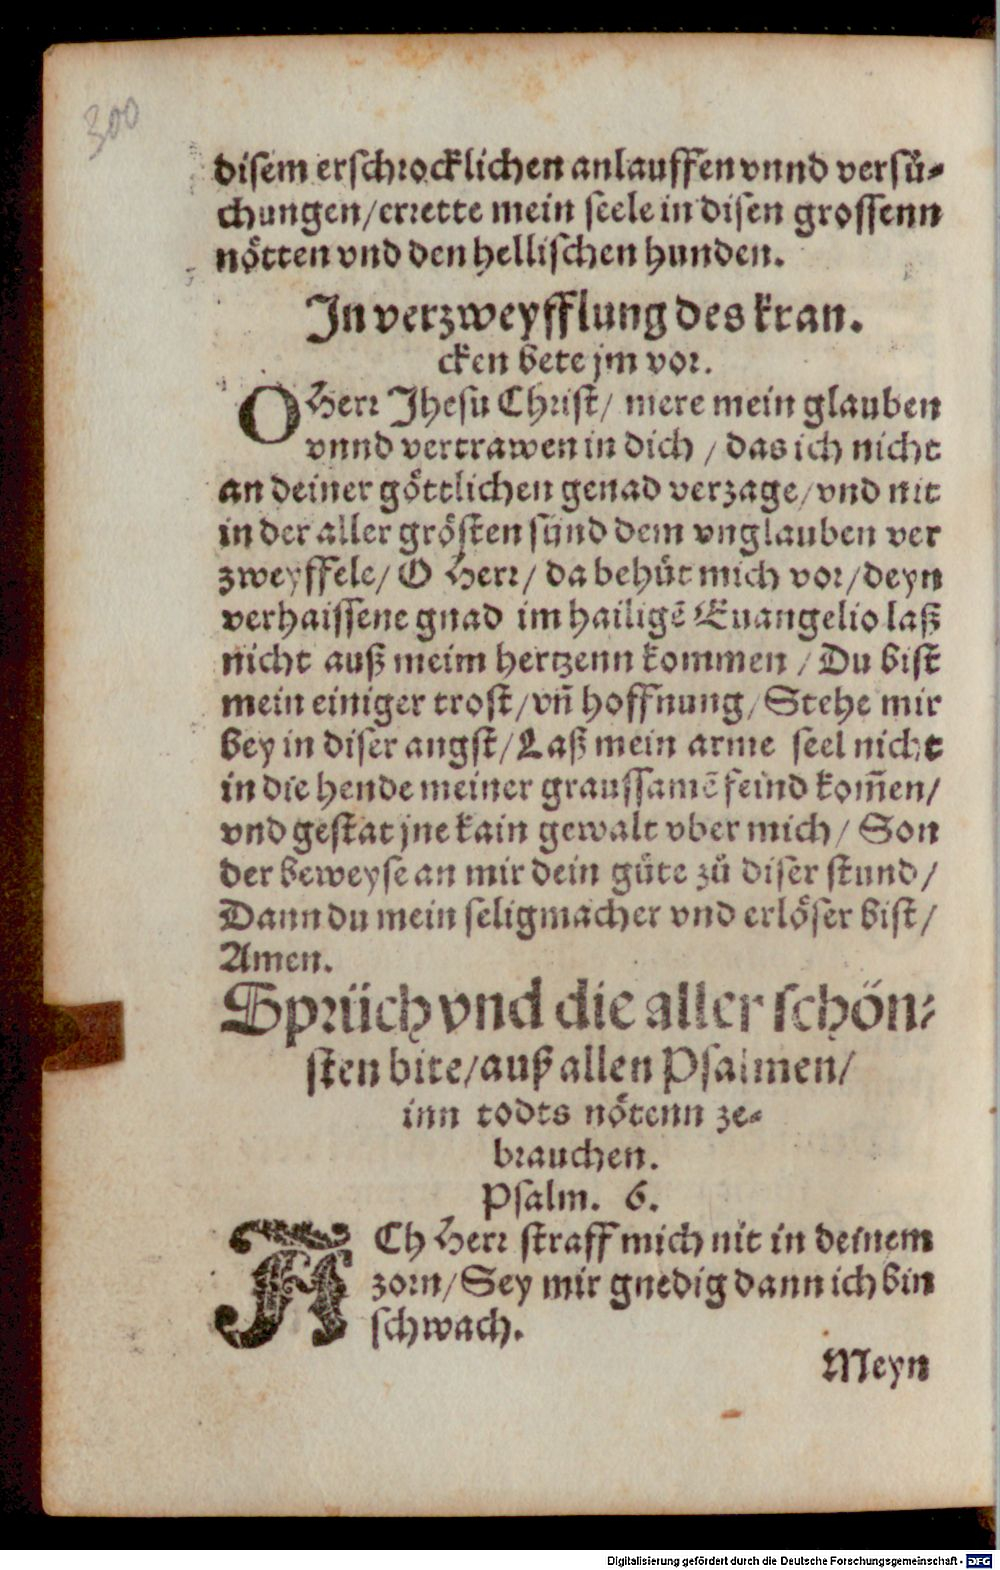 300
disem erschrocklichen anlauffen vnnd versuͤ-
chungen/errette mein seele in disen grossenn
nötten vnd den hellischen hunden.
In verzweyfflung des kran.
cken bete jm vor.
O Herr Jhesu Christ/ mere mein glauben
vnnd vertrawen in dich / das ich nicht
an deiner göttlichen genad verzage/vnd nit
in der aller grösten sünd dem vnglauben ver
zweyffele/ O Herr/ da behüt mich vor/deyn
verhaissene gnad im hailigē Euangelio laß
nicht auß meim hertzenn kommen / Du bist
mein einiger trost/vn̄ hoffnung/Stehe mir
bey in diser angst/Laß mein arme seel nicht
in die hende meiner graussamē feind kom̄en/
vnd gestat jne kain gewalt vber mich/ Son
der beweyse an mir dein güte zů diser stund/
Dann du mein seligmacher vnd erlöser bist/
Amen.
Sprüch vnd die aller schön-
sten bite/auß allen Psalmen/
inn todts nötenn ze-
brauchen.
Psalm. 6.
ACh Herr straff mich nit in deinem
zorn/Sey mir gnedig dann ich bin
schwach.
Meyn
Digitalisierung gefördert durch die Deutsche Forschungsgemeinschaft - DFG